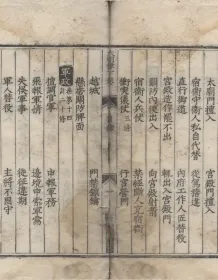 太廟門擅入 宮殿門擅入
宿衛守衛人私自代替 從駕稽違
直行御道 內府工作人匠替役
宮殿造作罷不出 輒出入宮殿門
關防內使出入 向宮殿射箭
宿衛人兵仗 禁經斷人充宿衛
衝突儀仗 三條 行宮營門
越城 門禁鎖鑰
懸帶關防牌面
軍政 卷第十四 計二十條
擅調官軍 申報軍務
飛報軍情 邊境申索軍需
失悞軍事 從征違期
軍人替役 主將不固守